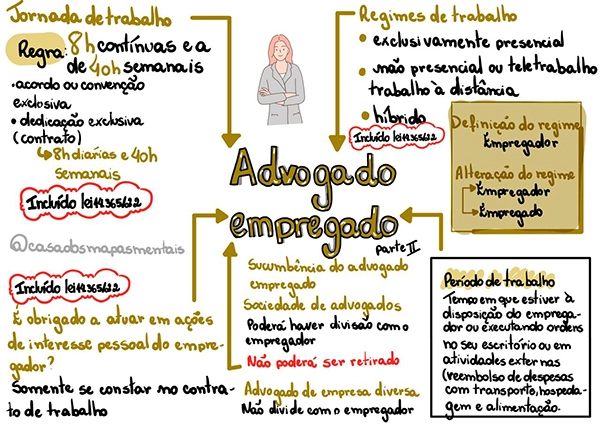 Jornada de trabalho
Regra: 8h contínuas e a
de 40h semanais
• acordo ou convenção
exclusiva
• dedicação exclusiva
(contrato)
↳ 8h diárias e 40h
semanais
Incluído lei 14.365/22
@casadosmapasmentais
Regimes de trabalho
• exclusivamente presencial
• não presencial ou teletrabalho
trabalho à distância
• híbrido
Incluído lei 14.365/22
Definição do regime
Empregador
Alteração do regime
→ Empregador
→ Empregado
Advogado
empregado
parte II
Incluído lei 14.365/22
É obrigado a atuar em ações
de interesse pessoal do empre-
gador?
Somente se constar no contra-
to de trabalho
Sucumbência do advogado
empregado
Sociedade de advogados
Poderá haver divisão com o
empregador
Não poderá ser retirado
Advogado de empresa diversa
Não divide com o empregador
Período de trabalho
Tempo em que estiver à
disposição do emprega-
dor ou executando ordens
no seu escritório ou em
atividades externas
(reembolso de despesas
com transporte, hospeda-
gem e alimentação.